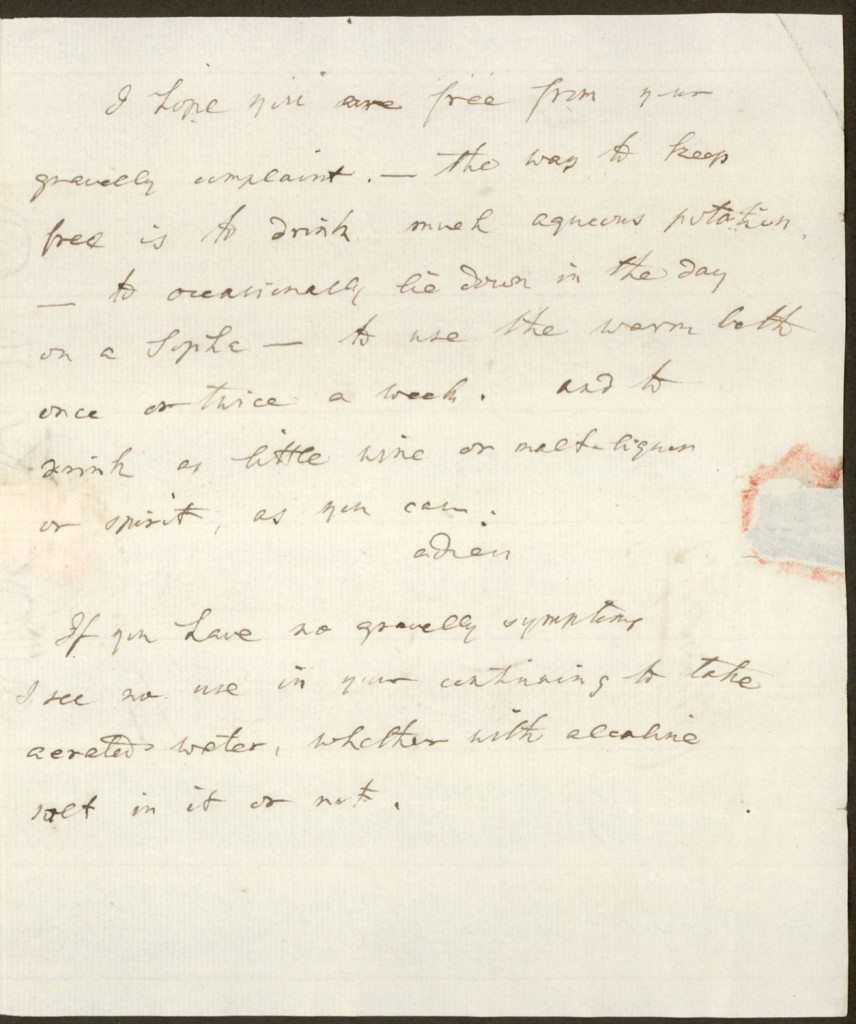 I hope you are free from your
gravelly complaint. — the way to keep
free is to drink much aqueous potation.
— to occasionally lie down in the day
on a Sopha — to use the warm bath
once or twice a week. and to
drink as little wine or malt-liquor
or spirit, as you can.
adieu
If you have no gravelly symptoms
I see no use in your continuing to take
aerated water, whether with alcaline
salt in it or not.